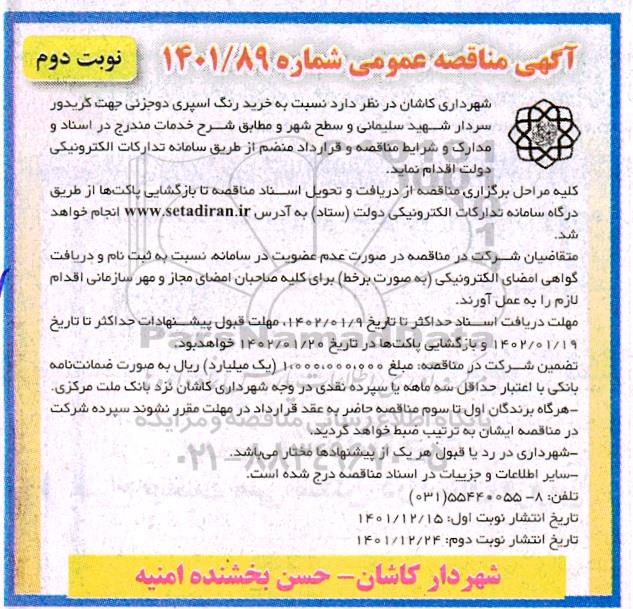 آگهی مناقصه عمومی شماره ۱۴۰۱/۸۹
نوبت دوم
شهرداری کاشان در نظر دارد نسبت به خرید رنگ اسپری دوجزئی جهت کریدور
سردار شهید سلیمانی و سطح شهر و مطابق شرح خدمات مندرج در اسناد و
مدارک و شرایط مناقصه و قرارداد منضم از طریق سامانه تدارکات الکترونیکی
دولت اقدام نماید.
کلیه مراحل برگزاری مناقصه از دریافت و تحویل اسناد مناقصه تا بازگشایی پاکت‌ها از طریق
درگاه سامانه تدارکات الکترونیکی دولت (ستاد) به آدرس www.setadiran.ir انجام خواهد
شد.
متقاضیان شرکت در مناقصه در صورت عدم عضویت در سامانه، نسبت به ثبت نام و دریافت
گواهی امضای الکترونیکی (به صورت برخط) برای کلیه صاحبان امضای مجاز و مهر سازمانی اقدام
لازم را به عمل آورند.
مهلت دریافت اسناد حداکثر تا تاریخ ۱۴۰۲/۰۱/۹، مهلت قبول پیشنهادات حداکثر تا تاریخ
۱۴۰۲/۰۱/۱۹ و بازگشایی پاکت‌ها در تاریخ ۱۴۰۲/۰۱/۲۰ خواهدبود.
تضمین شرکت در مناقصه: مبلغ ۱,۰۰۰,۰۰۰,۰۰۰ (یک میلیارد) ریال به صورت ضمانت‌نامه
بانکی با اعتبار حداقل سه ماهه یا سپرده نقدی در وجه شهرداری کاشان نزد بانک ملت مرکزی.
-هرگاه برندگان اول تا سوم مناقصه حاضر به عقد قرارداد در مهلت مقرر نشوند سپرده شرکت
در مناقصه ایشان به ترتیب ضبط خواهد گردید.
-شهرداری در رد یا قبول هر یک از پیشنهادها مختار می‌باشد.
-سایر اطلاعات و جزییات در اسناد مناقصه درج شده است.
تلفن: ۸- ۵۵۴۴۰۰۵۵(۰۳۱)
تاریخ انتشار نوبت اول: ۱۴۰۱/۱۲/۱۵
تاریخ انتشار نوبت دوم: ۱۴۰۱/۱۲/۲۴
شهردار کاشان- حسن بخشنده امنیه